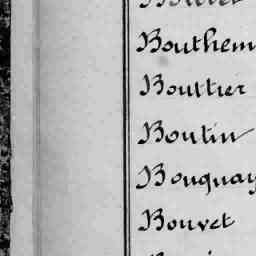 Bouthem
Boultier
Boutin
Bouquay
Bouvet